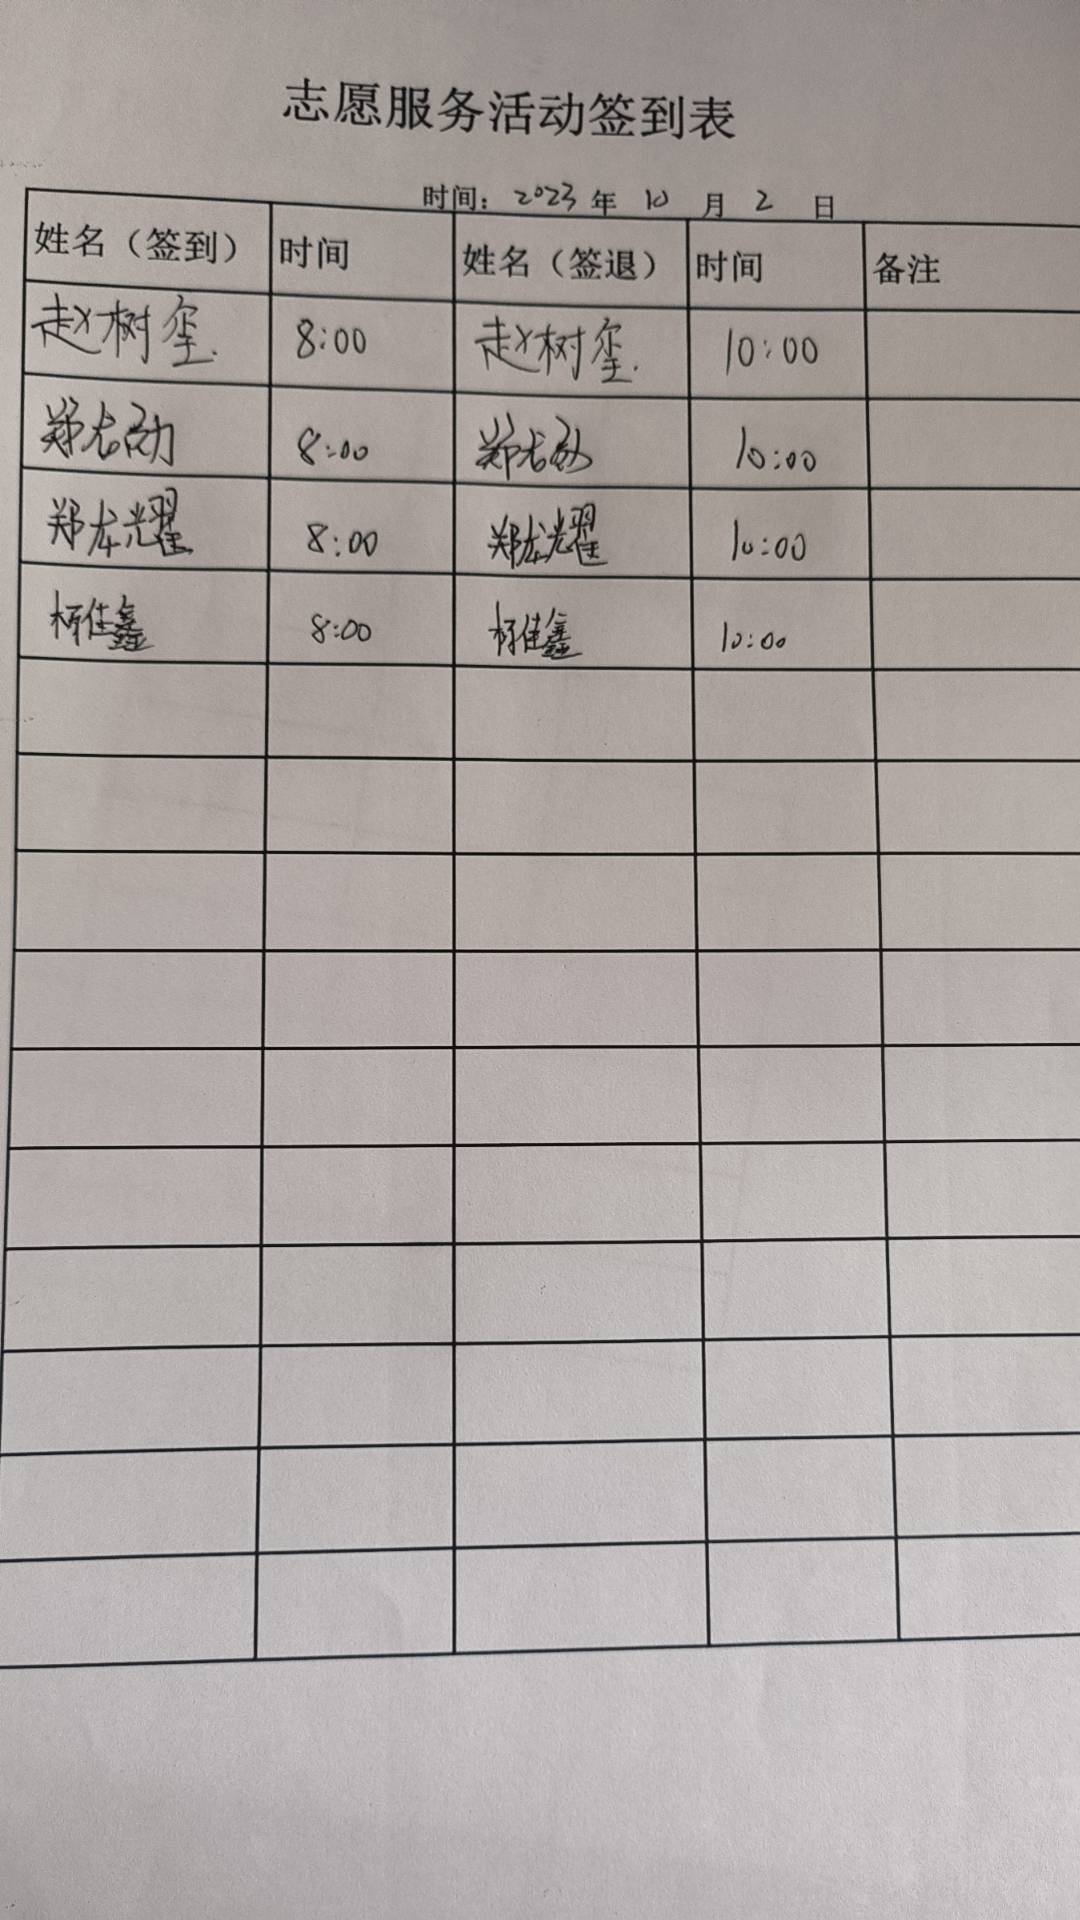 志愿服务活动签到表
时间：2023年 10 月 2 日
姓名（签到） 时间 姓名（签退） 时间 备注
赵树玺 8:00 赵树玺 10:00
郑 8:00 郑 10:00
郑龙光耀 8:00 郑龙光耀 10:00
佳鑫 8:00 佳鑫 10:00